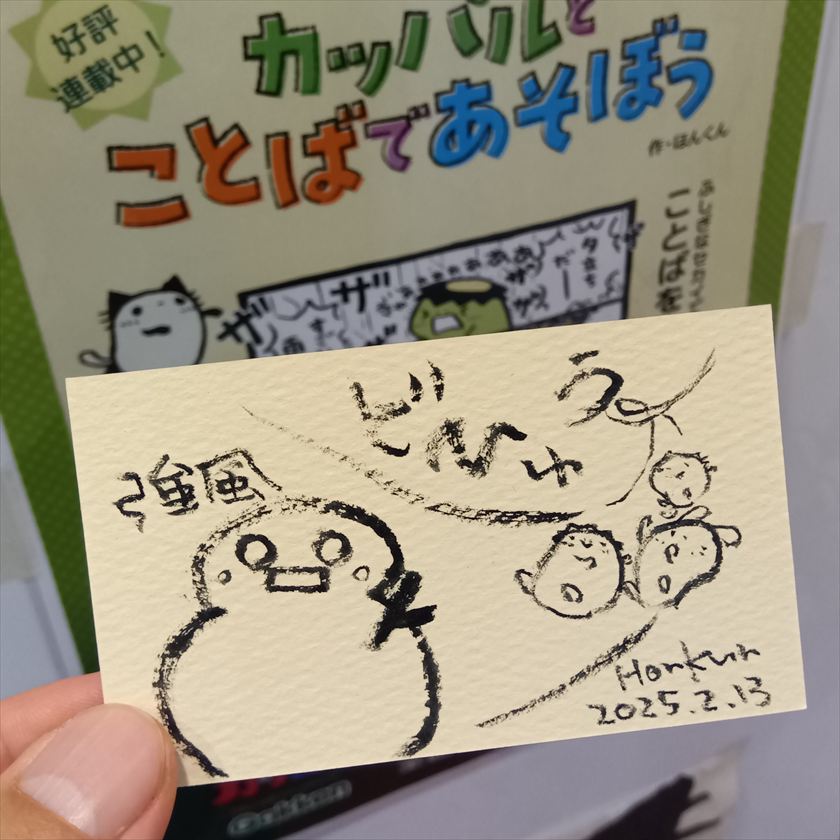 好評
連載中！
カッパルと
ことばであそぼう
作・ほんくん
ことばを
夕立ち
だー
ザ
ザ
どひゅう
強風
Honkun
2025.2.13
Gakken